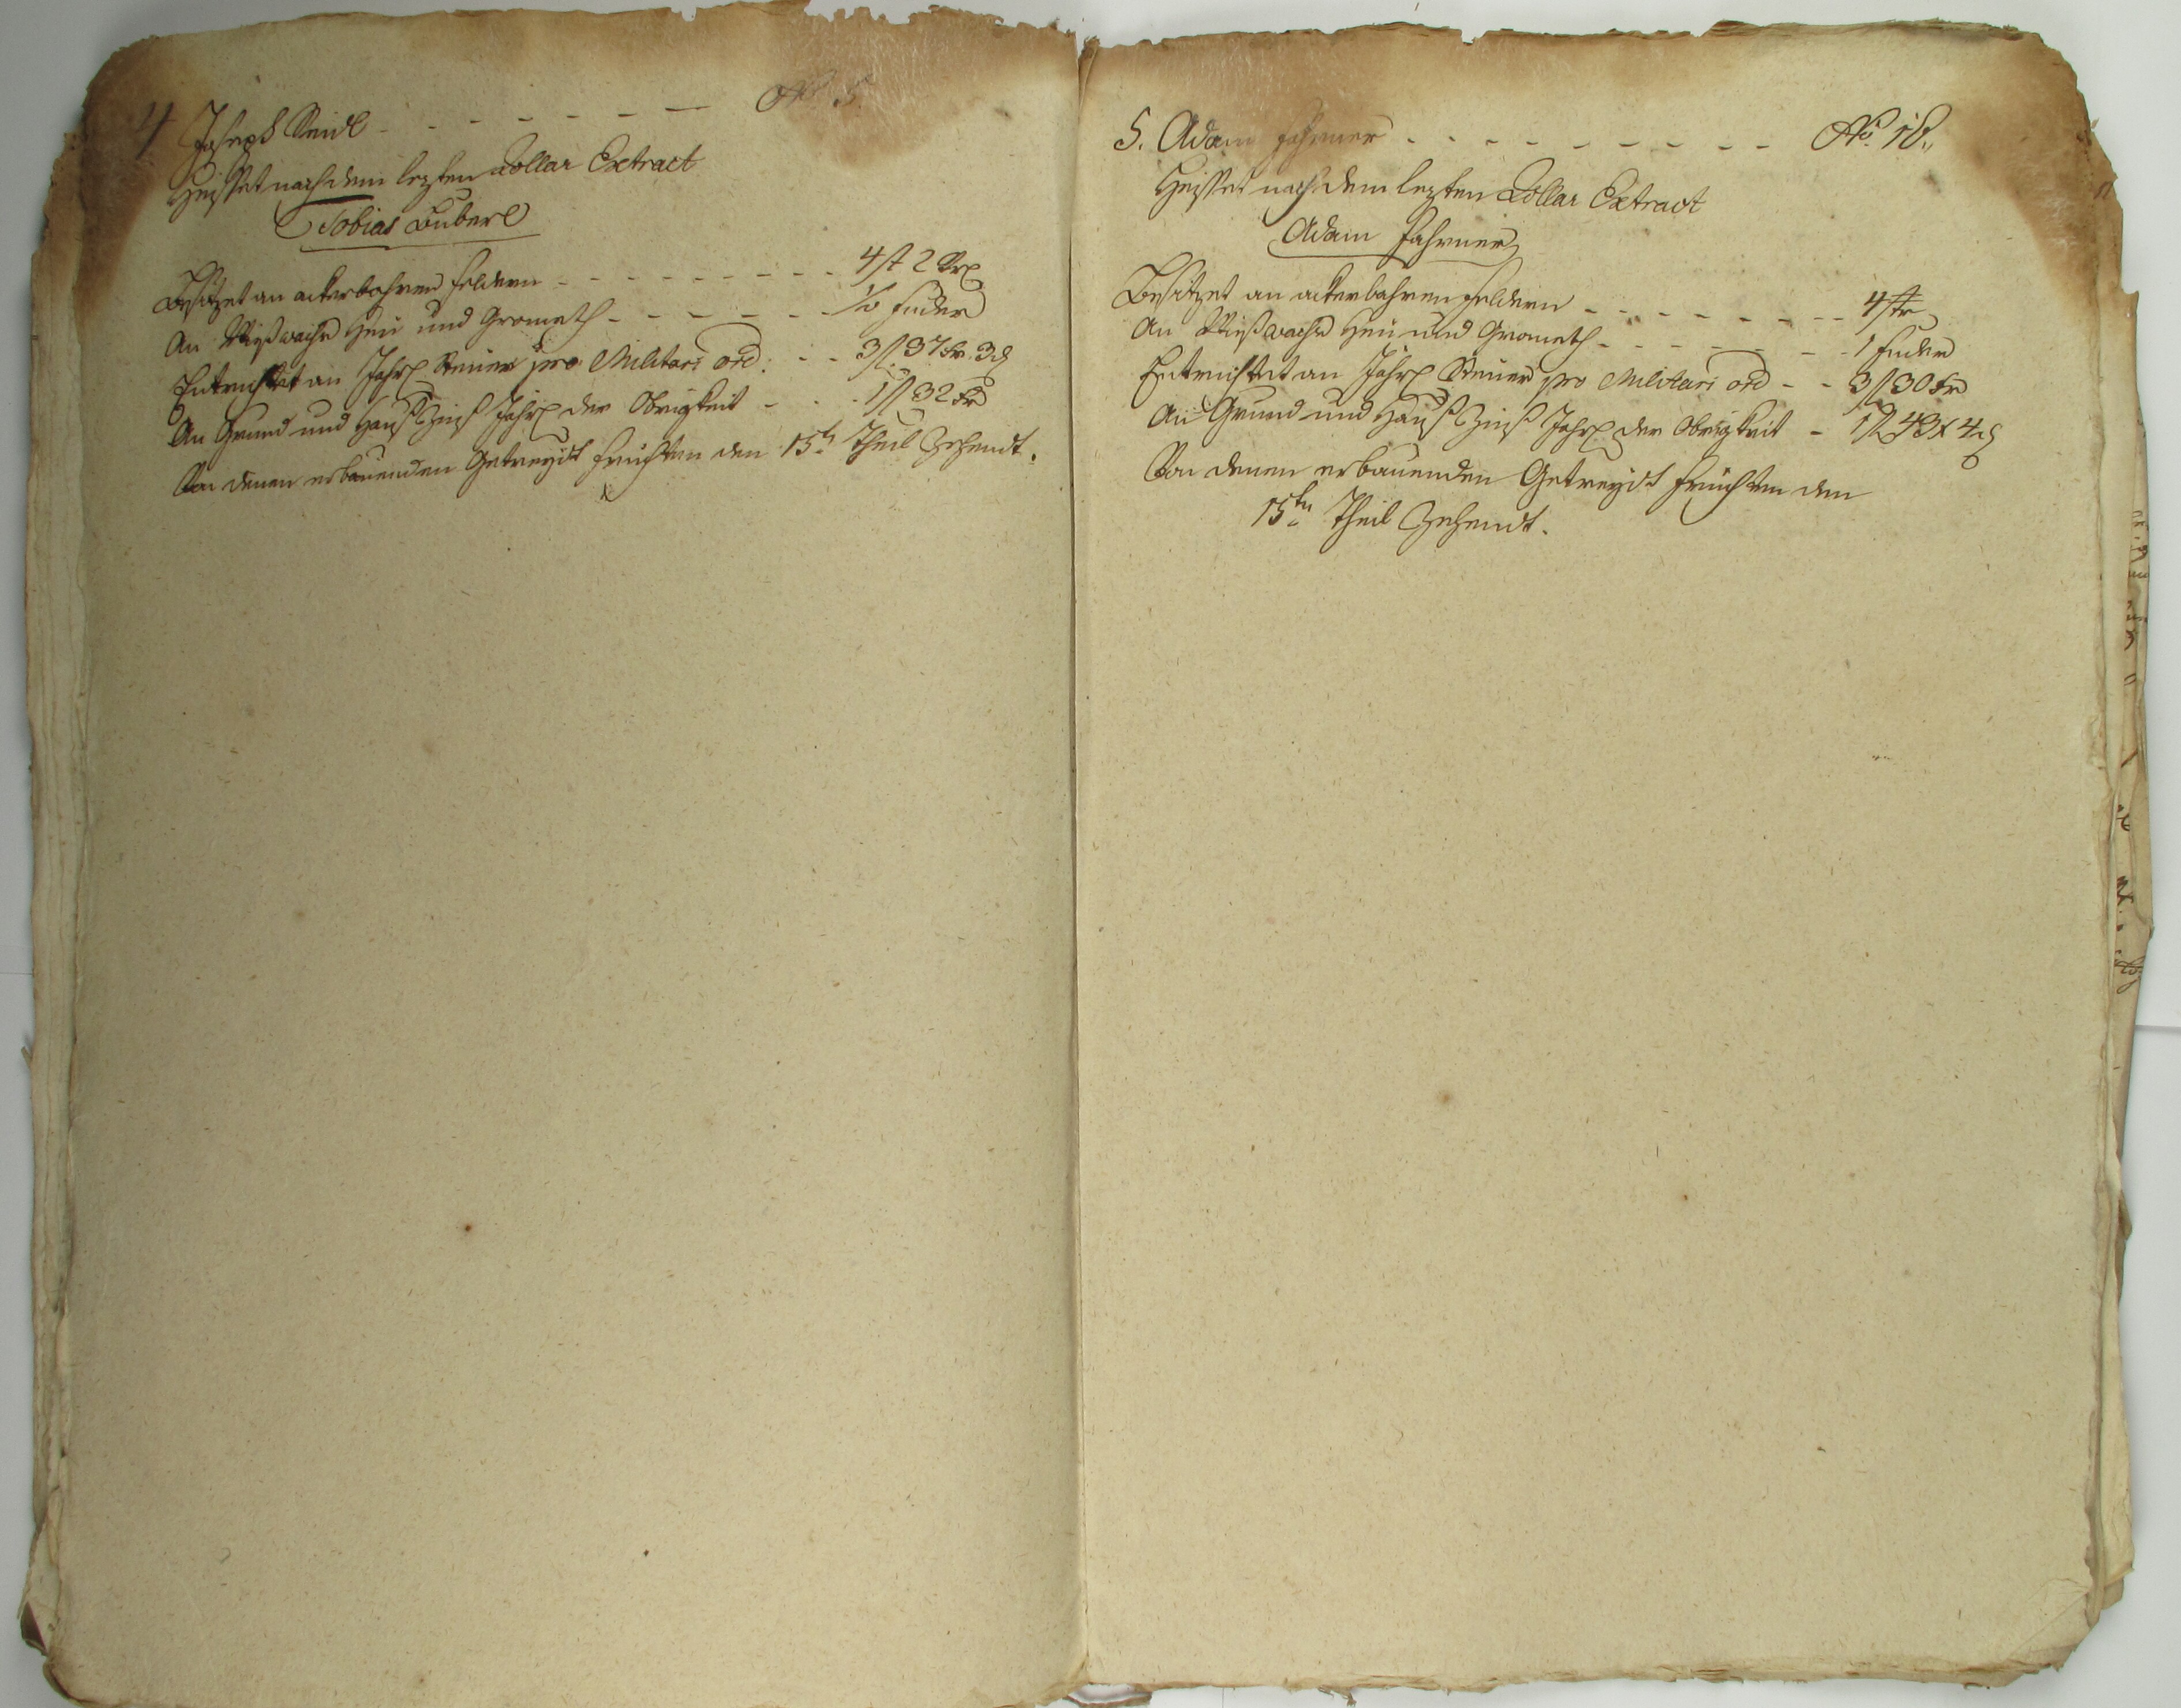 4 Joseph Seidl - - - - - - - No. 5.
Heisset nach dem lezten Collar Extract
Tobias Buberl
Besitzet an ackerbahren Feldern - - - - - - - - 4 st 2
An Wießwachs Heu und Grometh - - - - - - ½ Fuder
Entrichtet an Jährl Steuer pro Militari ord: - - 3 f 37 kr 3 d
An Grund und Hauß Zinß Jährl der Obrigkeit - - - 1 f 32 kr
Von denen erbauenden Getreydt Früchten den 15t Theil Zehendt.
5. Adam Fahrner - - - - - - - - - No. 18.
Heisset nach dem lezten Collar Extract
Adam Fahrner
Besitzet an ackerbahren Feldern - - - - - - - - 4 str
An Wießwachs Heu und Grometh - - - - - - - 1 Fuder
Entrichtet an Jährl Steuer pro Militari ord - - 3 f 30 kr
An Grund und Hauß Zinß Jährl der Obrigkeit - 1 f 43 x 4 d
Von denen erbauenden Getreydt Früchten den
15ten Theil Zehendt.